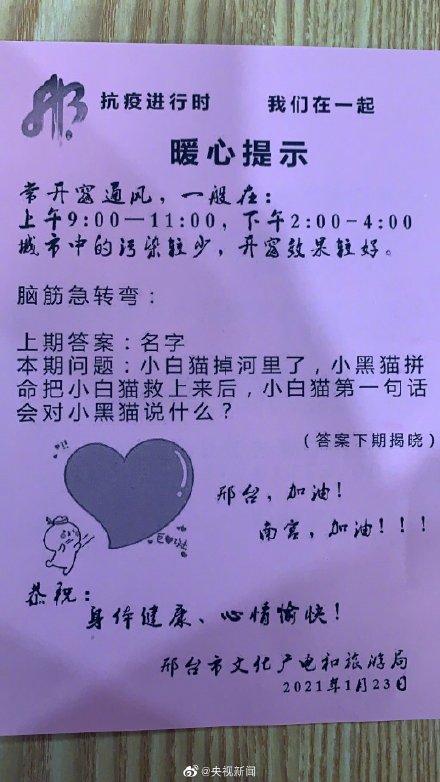 抗疫进行时 我们在一起
暖心提示
常开窗通风，一般在：
上午9:00—11:00，下午2:00-4:00
城市中的污染较少，开窗效果较好。
脑筋急转弯：
上期答案：名字
本期问题：小白猫掉河里了，小黑猫拼
命把小白猫救上来后，小白猫第一句话
会对小黑猫说什么？
（答案下期揭晓）
邢台，加油！
南宫，加油！！！
恭祝：
身体健康、心情愉快！
邢台市文化广电和旅游局
2021年1月23日
@央视新闻